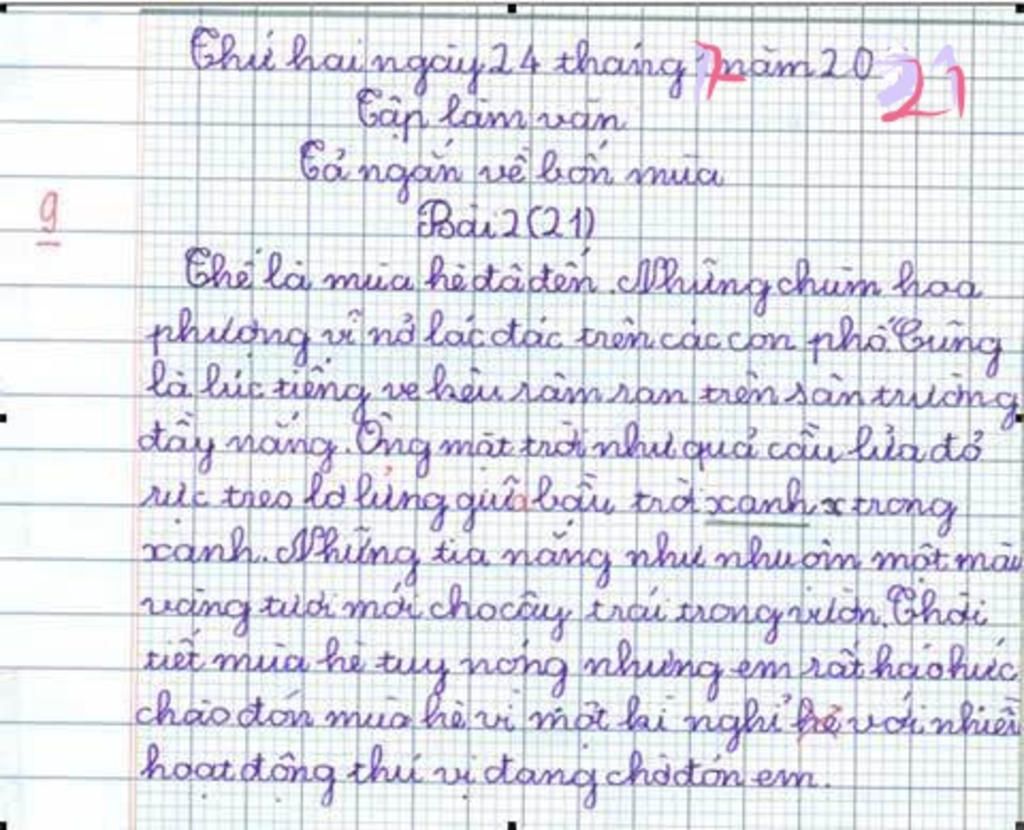 Thứ hai ngày 24 tháng 7 năm 2021
Tập làm văn
Tả ngắn về bốn mùa
Bài 2 (21)
9
Thế là mùa hè đã đến. Những chùm hoa
phượng vĩ nở lác đác trên các con phố. Cũng
là lúc tiếng ve kêu râm ran trên sân trường
đầy nắng. Ông mặt trời như quả cầu lửa đỏ
rực treo lơ lửng giữa bầu trời xanh x trong
xanh. Những tia nắng như nhuộm một màu
vàng tươi mới cho cây trái trong vườn. Thời
tiết mùa hè tuy nóng nhưng em rất háo hức
chào đón mùa hè vì một kì nghỉ hè với nhiều
hoạt động thú vị đang chờ đón em.